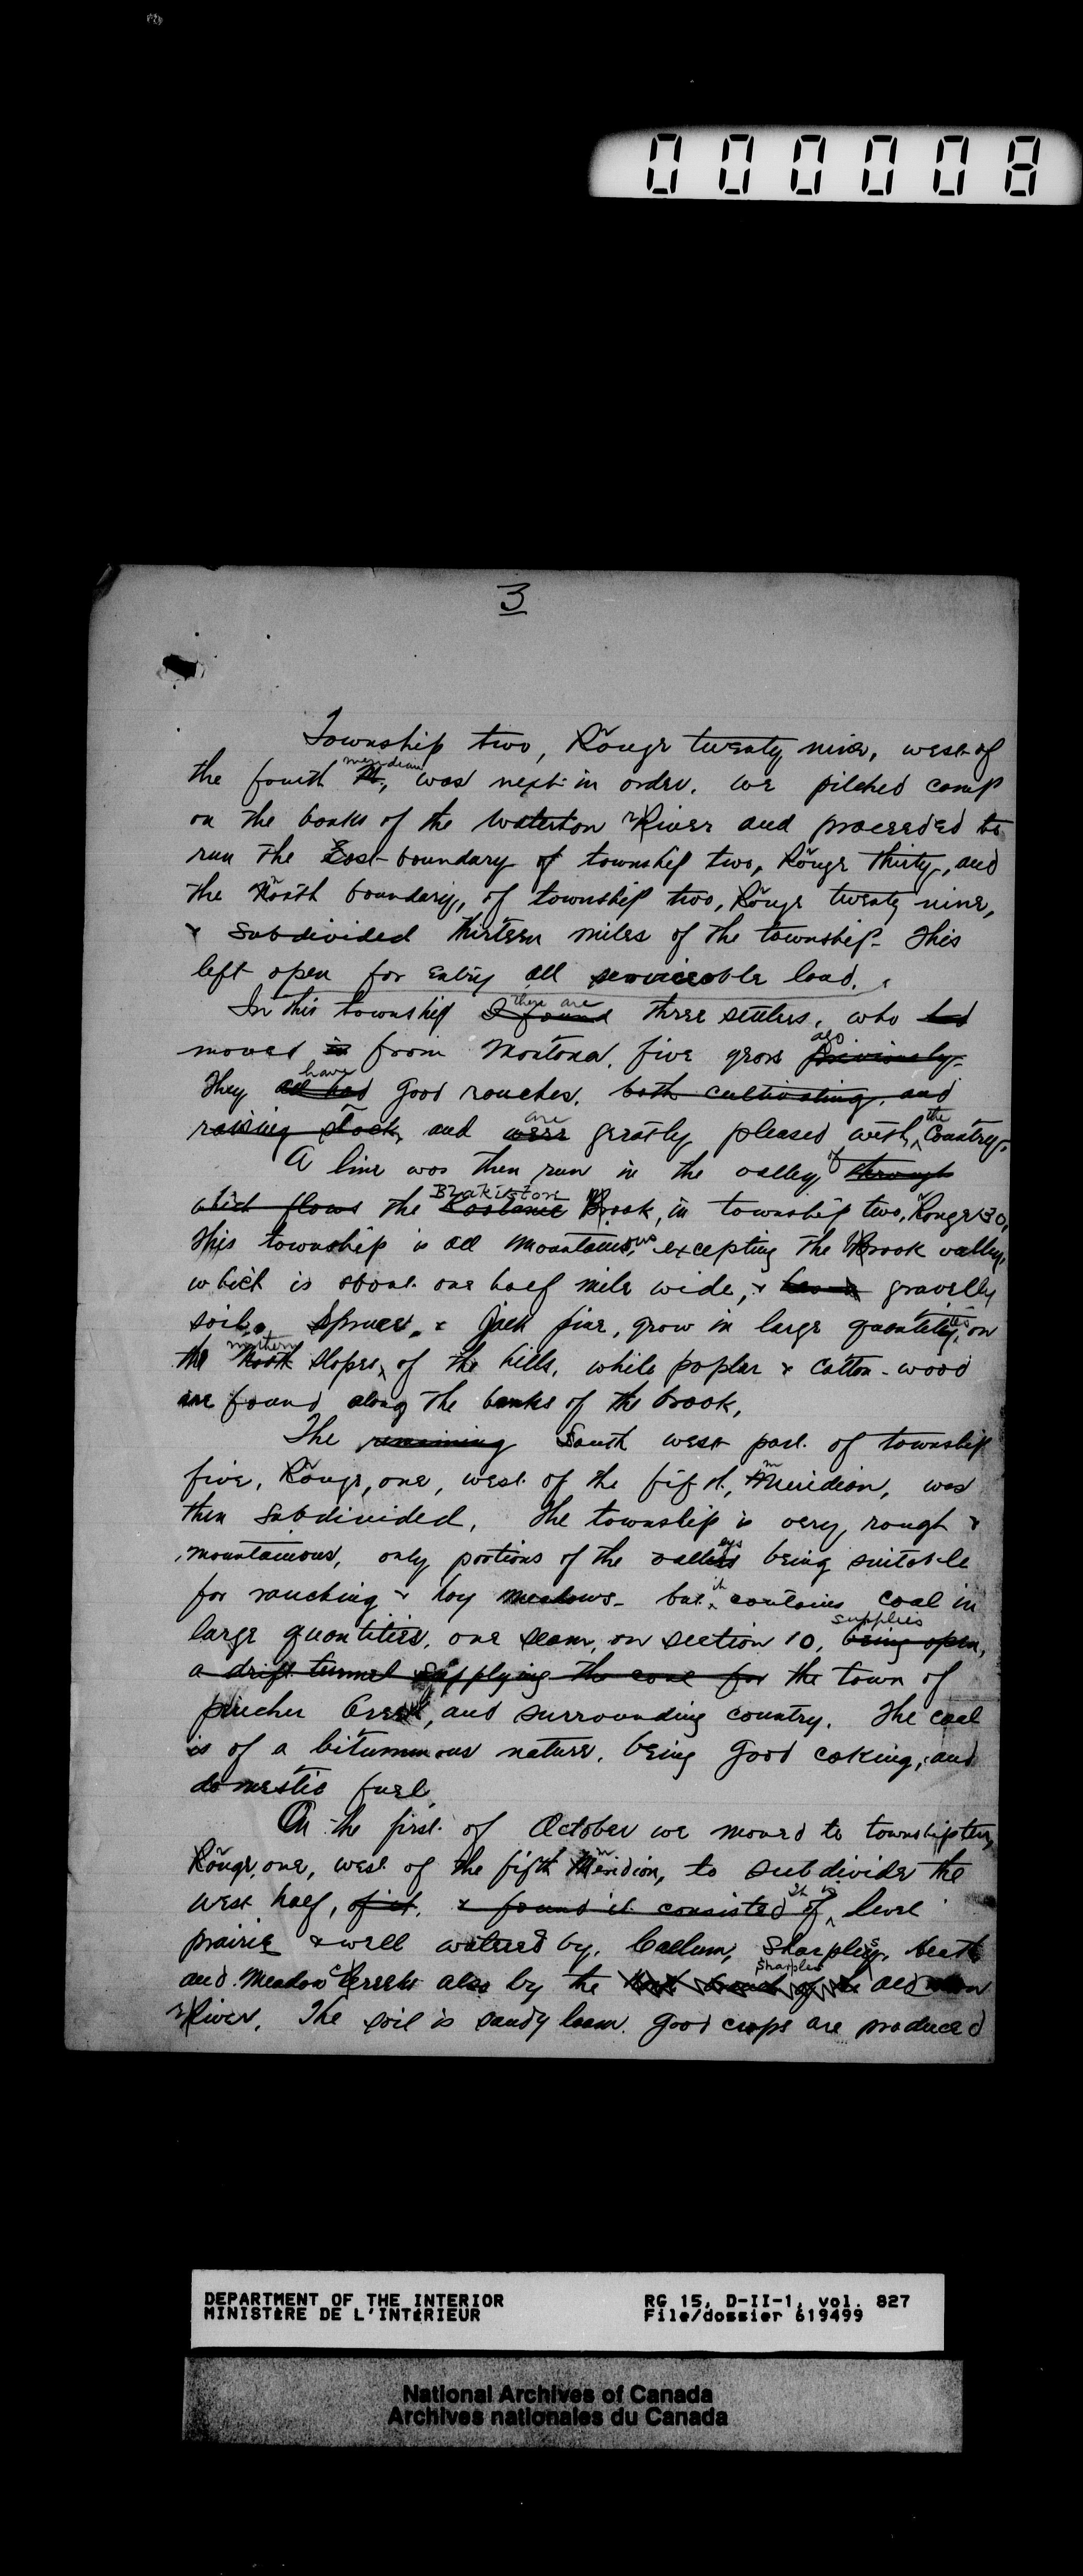 000008
3
Township two, Range twenty nine, west of
the fourth M, meridian was next in order. we pitched camp
on the banks of the Waterton River and proceeded to
run the East boundary of township two, Range thirty, and
the North boundary, of township two, Range twenty nine,
& subdivided thirteen miles of the township. This
left open for entry all serviceable land.
In this township I found there are three settlers, who had
moved in from Montana, five years previously ago.
They all had have good ranches, both cultivating, and
raising stock, and were are greatly pleased with the Country.
A line was then run in the valley of through
which flows the Kootenie Blakiston Brook, in township two, Range 30,
This township is all mountainous, excepting the Brook valley,
which is about one half mile wide, & has a gravelly
soil. Spruce, & Jack pine, grow in large quantities, on
the North northern slopes of the hills, while poplar & cotton-wood
are found along the banks of the brook,
The remaining South west part of township
five, Range, one, west of the fifth, Meridian, was
then subdivided. The township is very rough &
mountainous, only portions of the valleys being suitable
for ranching & hay meadows. but it contains coal in
large quantities, one seam, on section 10, being open, supplies
a drift tunnel supplying the coal for the town of
pincher Creek, and surrounding country. The coal
is of a bituminous nature, being good coking, and
domestic fuel.
On the first of October we moved to township ten,
Range, one, west of the fifth Meridian, to subdivide the
west half, of it, & found it consisted of It is level
prairie & well watered by Callum, Sharples, beath
and Meadow Creeks also by the Oldman
River. The soil is sandy loam. good crops are produced
DEPARTMENT OF THE INTERIOR
MINISTÈRE DE L'INTÉRIEUR
RG 15, D-II-1, vol. 827
File/dossier 619499
National Archives of Canada
Archives nationales du Canada